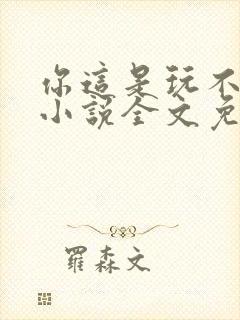 你這是玩不
小說全文免
羅森文